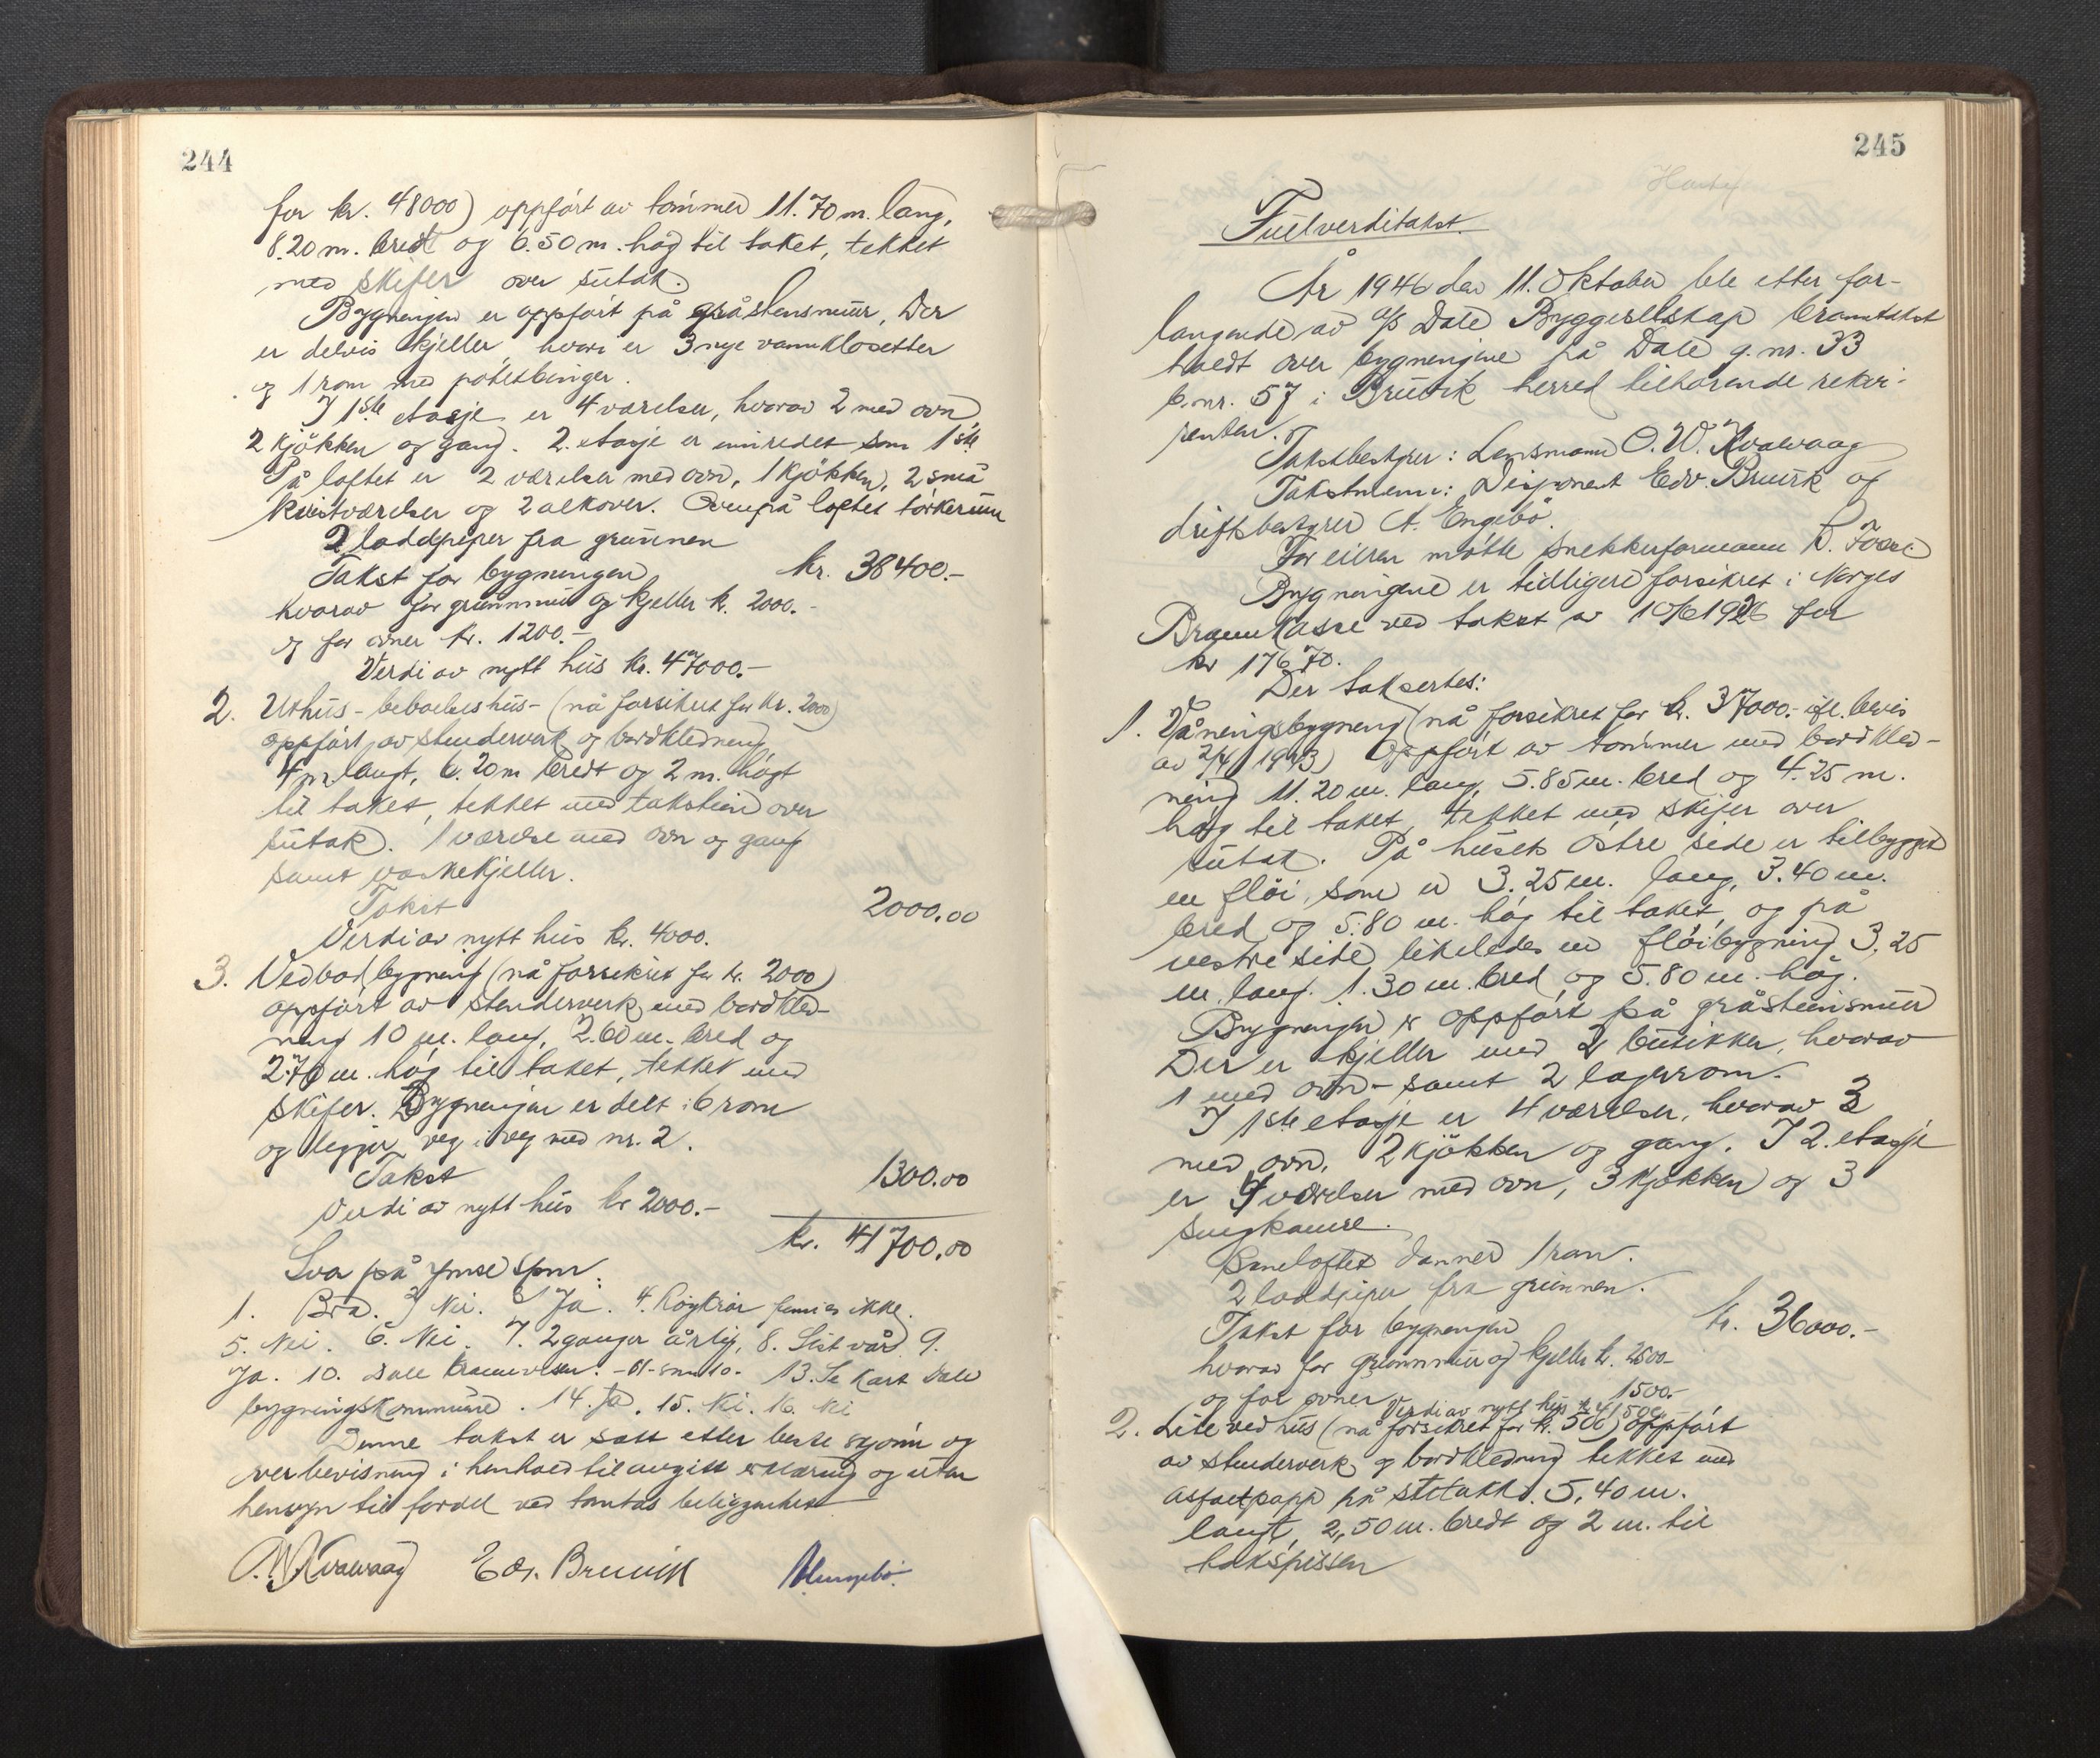 244
for kr. 48000) oppført av tømmer 11.70 m. lang,
8.20 m. bredt og 6.50 m. høg til taket, tekket
med skifer over sutak.
Bygningen er oppført på gråstensmur. Der
er delvis kjeller, hvori er 3 nye vannklosetter
og 1 rom med potetbinger.
I 1ste etasje er 4 værelser, hvorav 2 med ovn
2 kjøkken og gang. 2. etasje er innredet som 1ste
På loftet er 2 værelser med ovn, 1 kjøkken, 2 små
kvistværelser og 2 alkover. Ovenpå loftet tørkerum
2 loddpiper fra grunnen
Takst for bygningen kr. 38400.-
hvorav for grunnmur og kjeller kr. 2000.-
og for ovner kr. 1200.-
Verdi av nytt hus kr. 47000.-
2. Uthus - beboelseshus - (nå forsikret for kr. 2000)
oppført av stenderverk og bordkledning
4 m langt, 6.20 m bredt og 2 m. høgt
til taket, tekket med takstein over
sutak. 1 værelse med ovn og gang
samt vaskekjeller.
Takst 2000.00
Verdi av nytt hus kr. 4000.
3. Vedbodbygning (nå forsikret for kr. 2000)
oppført av stenderverk med bordkled-
ning 10 m. lang, 2.60 m. bred og
2.70 m. høg til taket, tekket med
skifer. Bygningen er delt i 6 rom
og ligger veg i veg med nr. 2.
Takst 1300.00
Verdi av nytt hus kr 2000.-
kr. 41700.00
Svar på ymse spm:
1. Bra. 2 Nei. 3 Ja. 4. Røykrør finnes ikke.
5. Nei. 6. Nei. 7. 2 ganger årlig, 8. Sist vår 9.
Ja. 10. Dale brannvesen. - 11 - som 10. 13. Se kart Dale
bygningskommune. 14. Ja. 15. Nei. 16. Nei
Denne takst er satt etter beste skjønn og
overbevisning i henhold til avgitt erklæring og uten
hensyn til fordel ved tomtas beliggenhet
O.W. Kvalvaag Edv. Bruvik A Engebø
245
Fullverditakst.
År 1946 den 11. Oktober ble etter for-
langende av a/s Dale Byggeselskap branntakst
holdt over bygningene på Dale g.nr. 33
b.nr. 57 i Bruvik herred tilhørende rekvi-
renten.
Takstbestyrer: Lensmann O. W. Kvalvaag
Takstmenn: Disponent Edv. Bruvik og
driftsbestyrer A. Engebø.
For eieren møtte snekkerformann
Bygningene er tidligere forsikret i Norges
Brannkasse ved takst av 10/6 1926 for
kr 17670.
Der takseres:
1. Våningsbygning (nå forsikret for kr. 37000.- ifl. bevis
av 2/4 1943) Oppført av tømmer med bordkled-
ning 11.20 m. lang, 5.85 m. bred og 4.25 m.
høg til taket, tekket med skifer over
sutak. På husets østre side er tilbygget
en fløi, som er 3.25 m. lang, 3.40 m.
bred og 5.80 m. høg til taket, og på
vestre side likeledes en fløibygning 3.25
m. lang. 1.30 m. bred og 5.80 m. høg.
Bygningen er oppført på gråsteinsmur
Der er kjeller med 2 butikker, hvorav
1 med ovn - samt 2 lagerrom.
I 1ste etasje er 4 værelser, hvorav 3
med ovn, 2 kjøkken og gang. I 2. etasje
er 4 værelser med ovn, 3 kjøkken og 3
sengkamre.
Bineloftet danner 1 rom.
2 loddpiper fra grunnen.
Takst for bygningen kr. 36000.-
hvorav for grunnmur og kjeller kr. 2500-
og for ovner 1500.-
Verdi av nytt hus kr 41500.
2. Lite vedhus (nå forsikret for kr. 500) oppført
av stenderverk og bordkledning tekket med
asfaltpapp på sutak. 5,40 m.
langt, 2,50 m. bredt og 2 m. til
takspissen